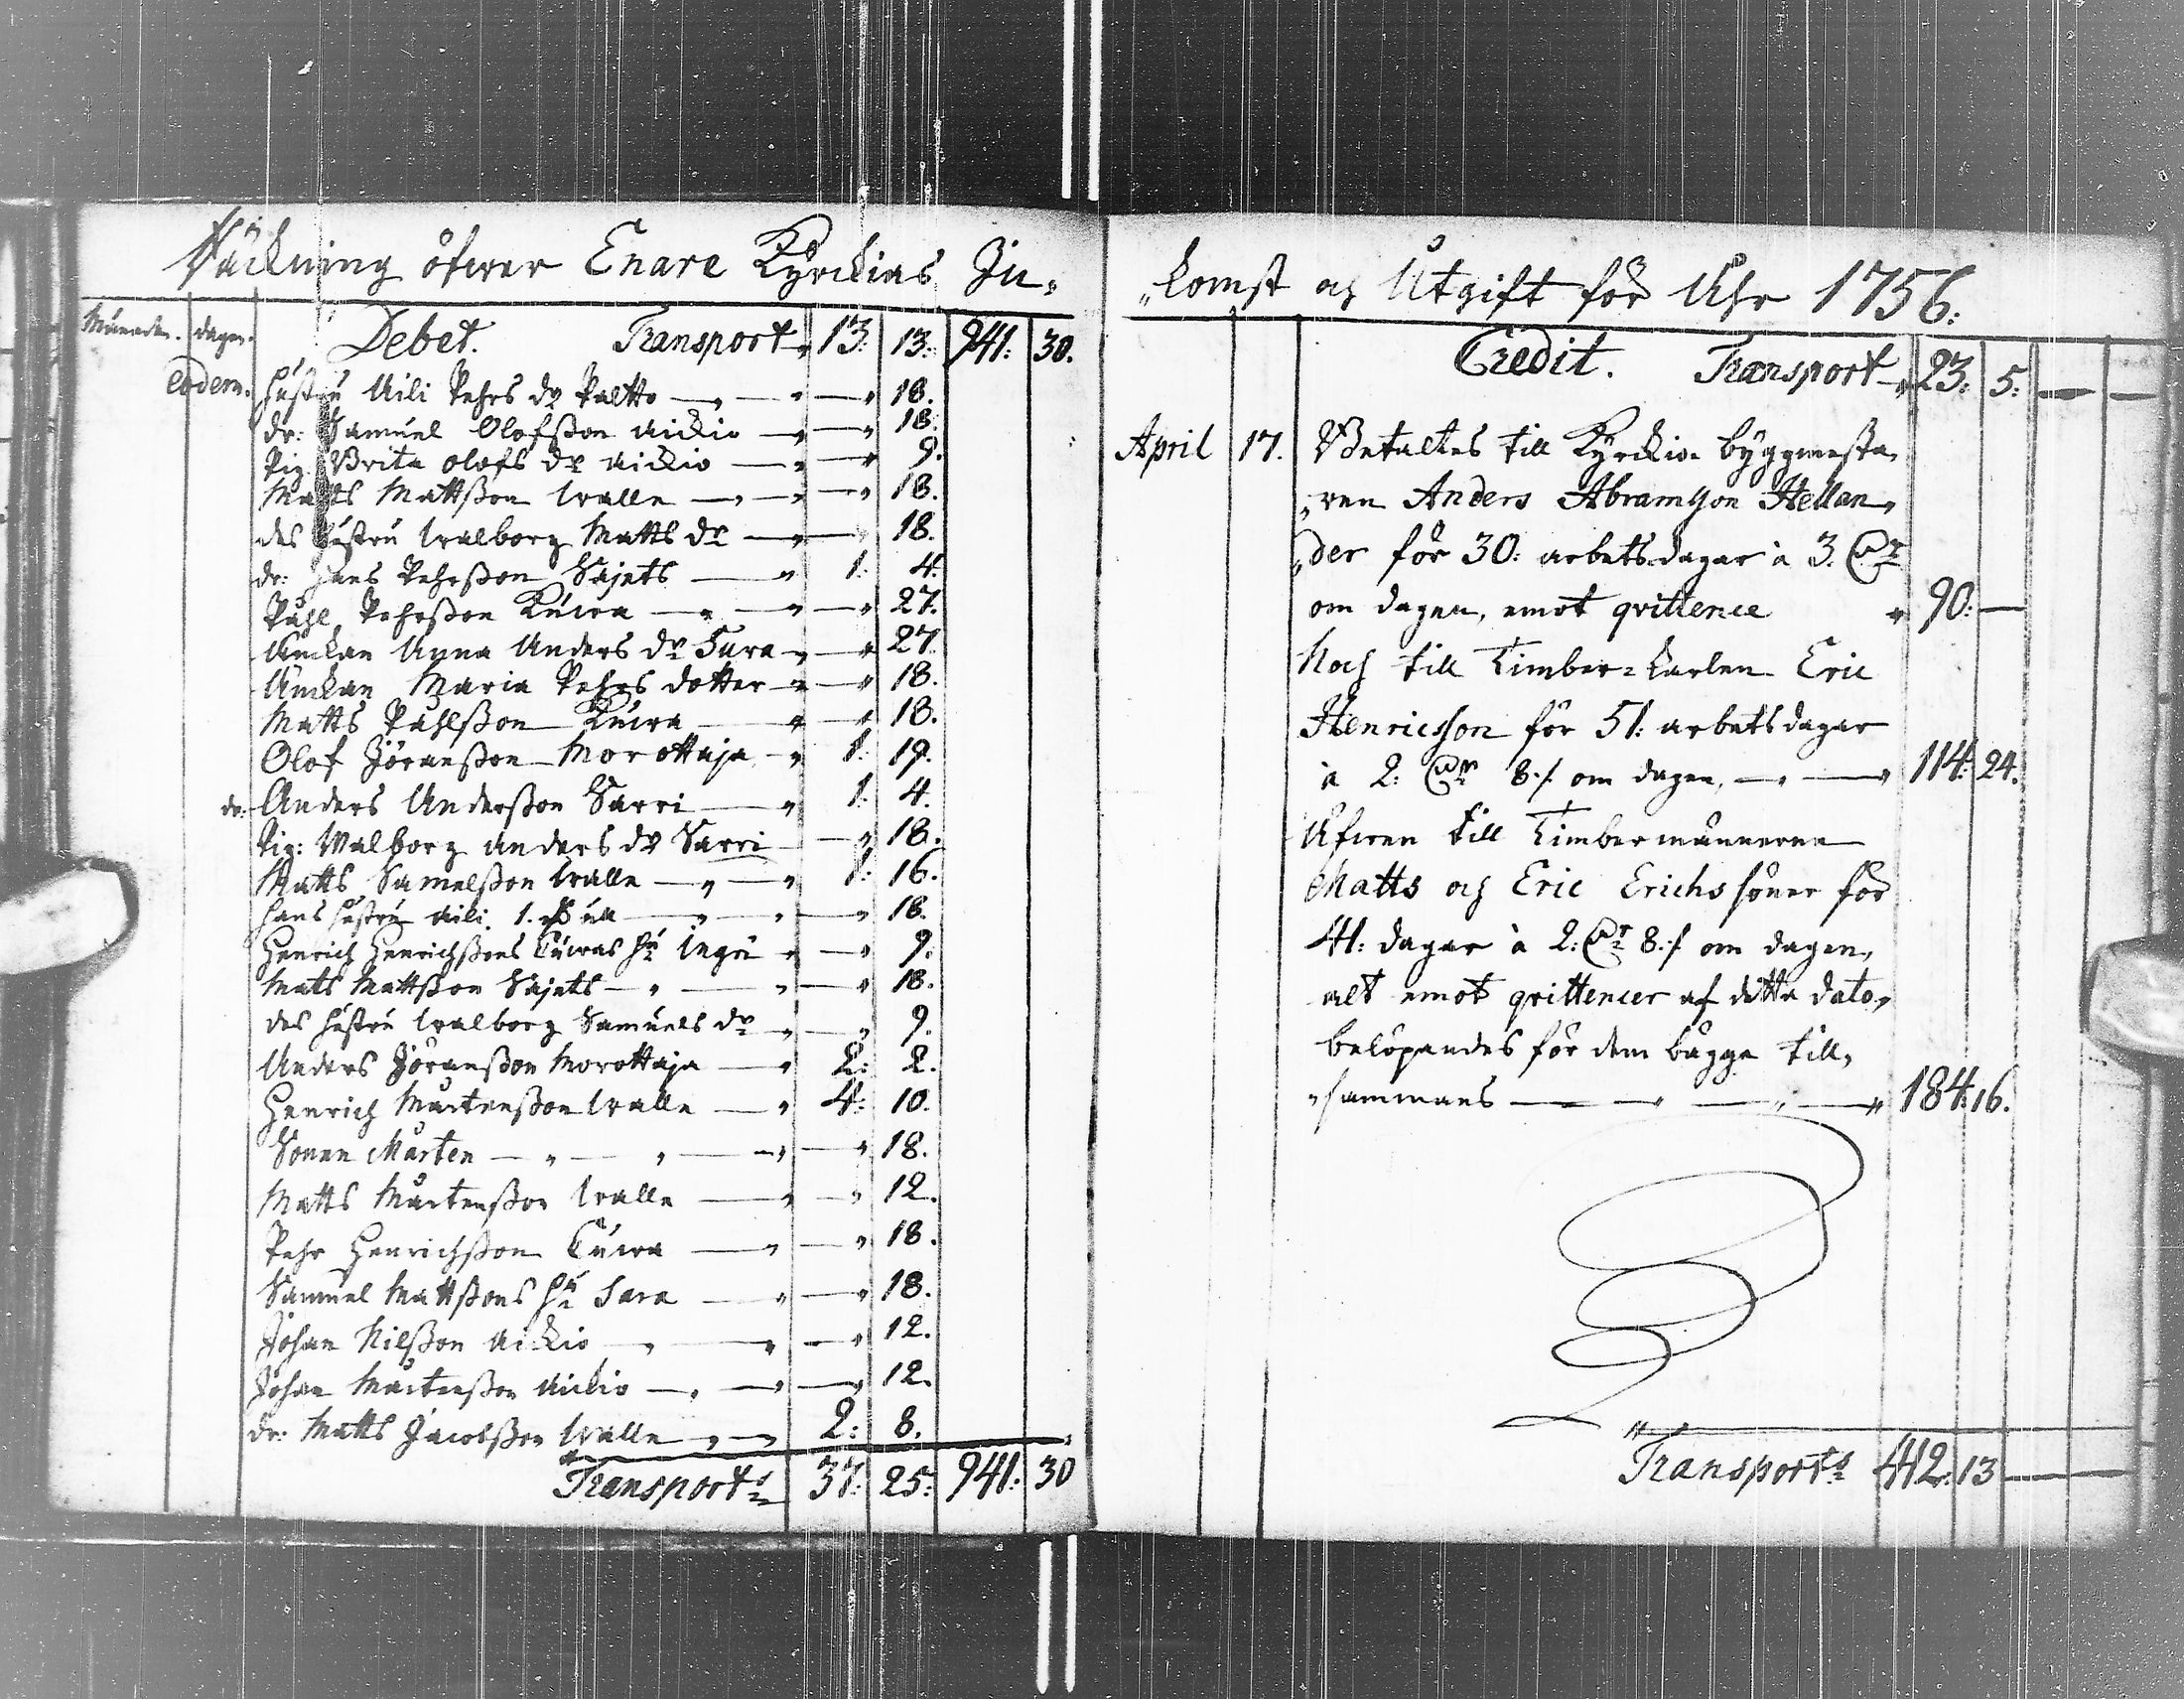 Räckning öfwer Enare Kyrckias In-
Månaden. dagen. Debet. Transport 13: 13: 941: 30.
eodem. hustru Aili Pehrs dr Paltto 18.
dr: Samuel Olofsson Aickio 18.
Pig. Brita olofs dr Aickio 9.
Matts Mattsson Walle 18.
des hustru Walborg Matts dr 18.
dr: Hans Pehrsson Sajets 1: 4.
Påhl Pehrsson Kuwa 27.
Änckan Anna Anders dr Sara 27.
Änckan Maria Pehrs dotter 18.
Matts Påhlsson Kuwa 18.
Olof Jöransson Morottaja 1: 19.
dr: Anders Andersson Sarri 1: 4.
Pig: Walborg anders dr Sarri 18.
Matts Samelsson Walle 1: 16.
hans hustru Aili 18.
Henrich Henrichssons Kuwas hu Ingri 9.
Mats Mattsson Sajets 18.
des hustru Walborg Samuels dr 9.
Anders Jöransson Morottaja 2: 2.
Henrich Mårtensson Walle 4: 10.
Sonen Mårten 18.
Matts Mårtensson Walle 12.
Pehr Henrichsson Kuwa 18.
Samuel Mattssons hu Sara 18.
Johan Nilsson Aickio 12.
Johan Mårtensson Aickio 12.
dr: Matts Jacobsson Walle 2: 8.
Transports 37: 25: 941: 30
komst och Utgift för Åhr 1756:
Credit. Transport 23: 5: — —
April 17. Betaltes till Kyrckio byggmesta-
ren Anders Abramsson Hellan-
der för 30: arbetsdagar à 3. Dr
om dagen, emot qvittence 90: —
Noch till Timber-karlen Eric
Henricsson för 51: arbetsdagar
à 2: Dr 8./. om dagen, 114: 24.
Äfwen till Timbermännerne
Matts och Eric Erichs söner för
41: dagar à 2: Dr 8./. om dagen,
alt emot qvittencer af detta dato,
belöpandes för dem bägge till-
sammans 184: 16.
Transports 412: 13